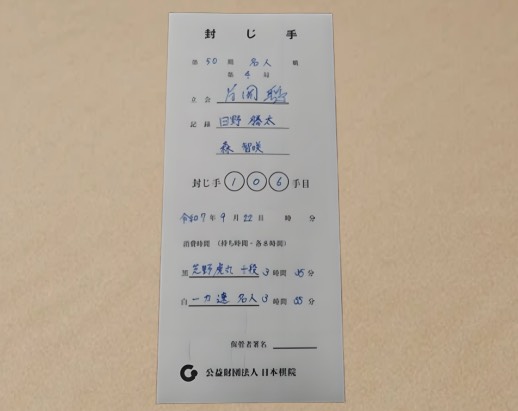 封じ手
第 50 期 名人 戦
第 4 局
立会 片岡 聡
記録 日野 勝太
森 智咲
封じ手 1 0 6 手目
令和7年 9月 22日 時 分
消費時間 (持ち時間・各8時間)
黒 芝野虎丸 十段 3時間 45分
白 一力 遼 名人 3時間 55分
保管者署名
公益財団法人 日本棋院